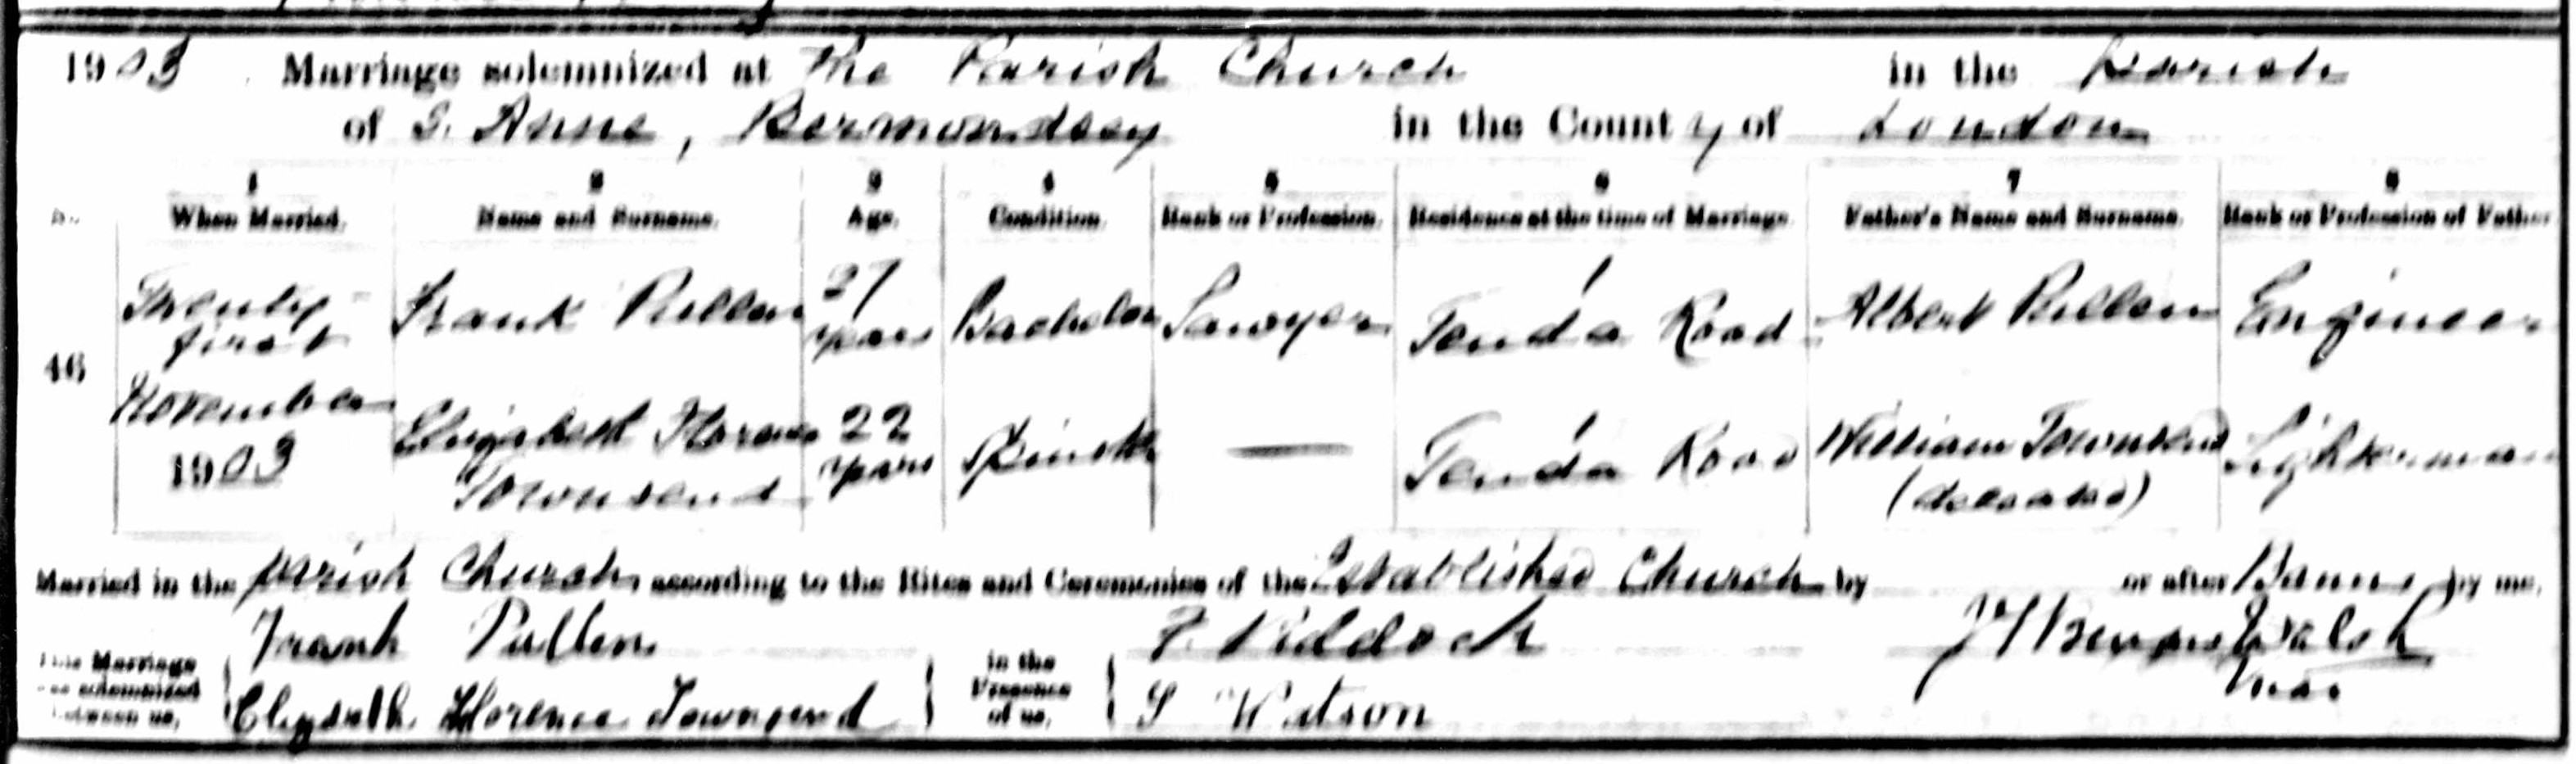 1903 Marriage solemnized at The Parish Church in the Parish
of S. Anne, Bermondsey in the County of London
1 2 3 4 5 6 7 8
No. When Married. Name and Surname. Age. Condition. Rank or Profession. Residence at the time of Marriage. Father's Name and Surname. Rank or Profession of Father
46 Twenty-first November 1903
Frank Pullen 27 years Bachelor Sawyer Tenda Road Albert Pullen Engineer
Elizabeth Florence Townsend 22 years Spinster — Tenda Road William Townsend (deceased) Lighterman
Married in the parish Church according to the Rites and Ceremonies of the Established Church by or after Banns by me,
This Marriage was solemnized between us, Frank Pullen
Elizabeth Florence Townsend
in the Presence of us, F. Piddock
S Watson
Walsh
Vicar